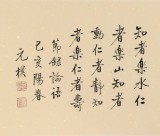 知者樂水仁
者樂山知者
動仁者靜知
者樂仁者壽
節錄論語
己亥陽春
元樸